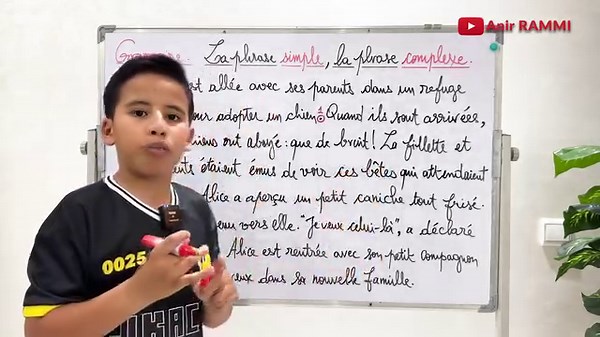 Anir RAMMI
Grammaire : La phrase simple, la phrase complexe.
est allée avec ses parents dans un refuge
pour adopter un chien. Quand ils sont arrivés,
chiens ont aboyé : que de bruit ! La fillette et
étaient émus de voir ces bêtes qui attendaient
Alice a aperçu un petit caniche tout frisé.
venu vers elle. "Je veux celui-là", a déclaré
Alice est rentrée avec son petit compagnon
dans sa nouvelle famille.
0025